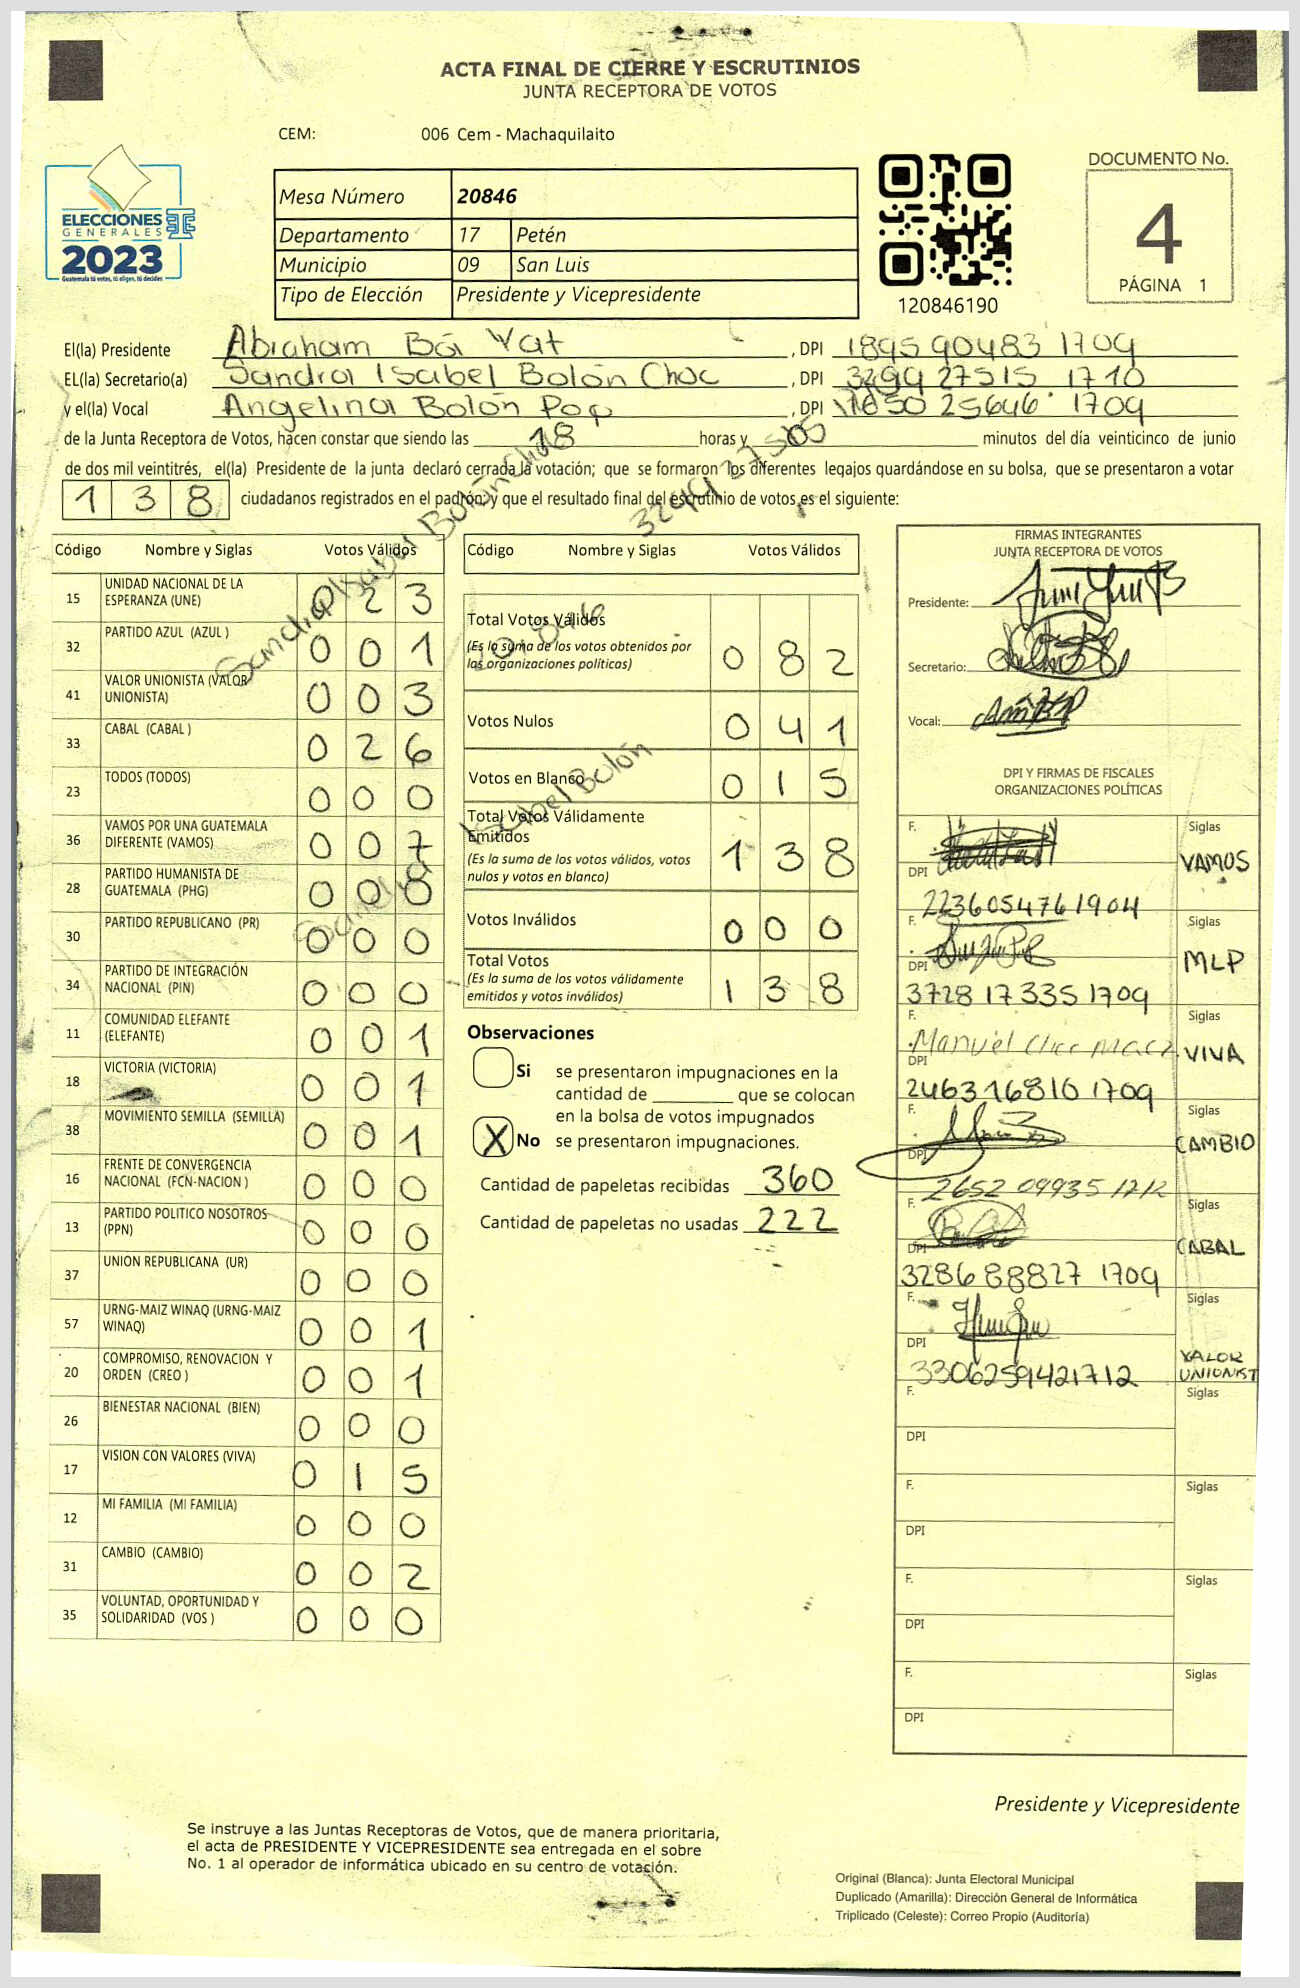 ACTA FINAL DE CIERRE Y ESCRUTINIOS
JUNTA RECEPTORA DE VOTOS
CEM: 006 Cem - Machaquilaito
ELECCIONES
GENERALES
2023
Guatemala tú votas, tú eliges, tú decides
Mesa Número 20846
Departamento 17 Petén
Municipio 09 San Luis
Tipo de Elección Presidente y Vicepresidente
120846190
DOCUMENTO No.
4
PÁGINA 1
El(la) Presidente Abraham Bá Yat , DPI 1895 90483 1709
EL(la) Secretario(a) Sandra Isabel Bolón Choc , DPI 3299 27515 1710
y el(la) Vocal Angelina Bolón Pop , DPI 1650 25646 1709
de la Junta Receptora de Votos, hacen constar que siendo las 18 horas y 05 minutos del día veinticinco de junio
de dos mil veintitrés, el(la) Presidente de la junta declaró cerrada la votación; que se formaron los diferentes legajos guardándose en su bolsa, que se presentaron a votar
138 ciudadanos registrados en el padrón, y que el resultado final del escrutinio de votos es el siguiente:
Código Nombre y Siglas Votos Válidos
15 UNIDAD NACIONAL DE LA ESPERANZA (UNE) 0 2 3
32 PARTIDO AZUL (AZUL ) 0 0 1
41 VALOR UNIONISTA (VALOR UNIONISTA) 0 0 3
33 CABAL (CABAL ) 0 2 6
23 TODOS (TODOS) 0 0 0
36 VAMOS POR UNA GUATEMALA DIFERENTE (VAMOS) 0 0 7
28 PARTIDO HUMANISTA DE GUATEMALA (PHG) 0 0 8
30 PARTIDO REPUBLICANO (PR) 0 0 0
34 PARTIDO DE INTEGRACIÓN NACIONAL (PIN) 0 0 0
11 COMUNIDAD ELEFANTE (ELEFANTE) 0 0 1
18 VICTORIA (VICTORIA) 0 0 1
38 MOVIMIENTO SEMILLA (SEMILLA) 0 0 1
16 FRENTE DE CONVERGENCIA NACIONAL (FCN-NACION ) 0 0 0
13 PARTIDO POLITICO NOSOTROS (PPN) 0 0 0
37 UNION REPUBLICANA (UR) 0 0 0
57 URNG-MAIZ WINAQ (URNG-MAIZ WINAQ) 0 0 1
20 COMPROMISO, RENOVACION Y ORDEN (CREO ) 0 0 1
26 BIENESTAR NACIONAL (BIEN) 0 0 0
17 VISION CON VALORES (VIVA) 0 1 5
12 MI FAMILIA (MI FAMILIA) 0 0 0
31 CAMBIO (CAMBIO) 0 0 2
35 VOLUNTAD, OPORTUNIDAD Y SOLIDARIDAD (VOS ) 0 0 0
Sandra Isabel Bolón Choc
Isabel Bolón
Código Nombre y Siglas Votos Válidos
Total Votos Válidos
(Es la suma de los votos obtenidos por
las organizaciones políticas) 0 8 2
Votos Nulos 0 4 1
Votos en Blanco 0 1 5
Total Votos Válidamente
Emitidos
(Es la suma de los votos válidos, votos
nulos y votos en blanco) 1 3 8
Votos Inválidos 0 0 0
Total Votos
(Es la suma de los votos válidamente
emitidos y votos inválidos) 1 3 8
Observaciones
Si se presentaron impugnaciones en la
cantidad de ________ que se colocan
en la bolsa de votos impugnados
X No se presentaron impugnaciones.
Cantidad de papeletas recibidas 360
Cantidad de papeletas no usadas 222
FIRMAS INTEGRANTES
JUNTA RECEPTORA DE VOTOS
Presidente:
Secretario:
Vocal:
DPI Y FIRMAS DE FISCALES
ORGANIZACIONES POLÍTICAS
F. Siglas
DPI 223605476 1904 VAMOS
F. Siglas
DPI 3728 17335 1709 MLP
F. Siglas
DPI 246316810 1709 VIVA
F. Siglas
DPI 2652 09935 1712 CAMBIO
F. Siglas
DPI 3286 88827 1709 CABAL
F. Siglas
DPI 3306259421712 VALOR UNIONIST
F. Siglas
DPI
F. Siglas
DPI
F. Siglas
DPI
F. Siglas
DPI
Presidente y Vicepresidente
Se instruye a las Juntas Receptoras de Votos, que de manera prioritaria,
el acta de PRESIDENTE Y VICEPRESIDENTE sea entregada en el sobre
No. 1 al operador de informática ubicado en su centro de votación.
Original (Blanca): Junta Electoral Municipal
Duplicado (Amarilla): Dirección General de Informática
Triplicado (Celeste): Correo Propio (Auditoría)